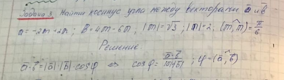 Задача 1. Найти косинус угла между векторами a и b
a = 2m - 4n; b = 2m - 6n; |m| = √3, |n| = 2, (m^n) = π/6
Решение
a·b = |a||b| cos φ ⇒ cos φ = ; φ = (a^b)